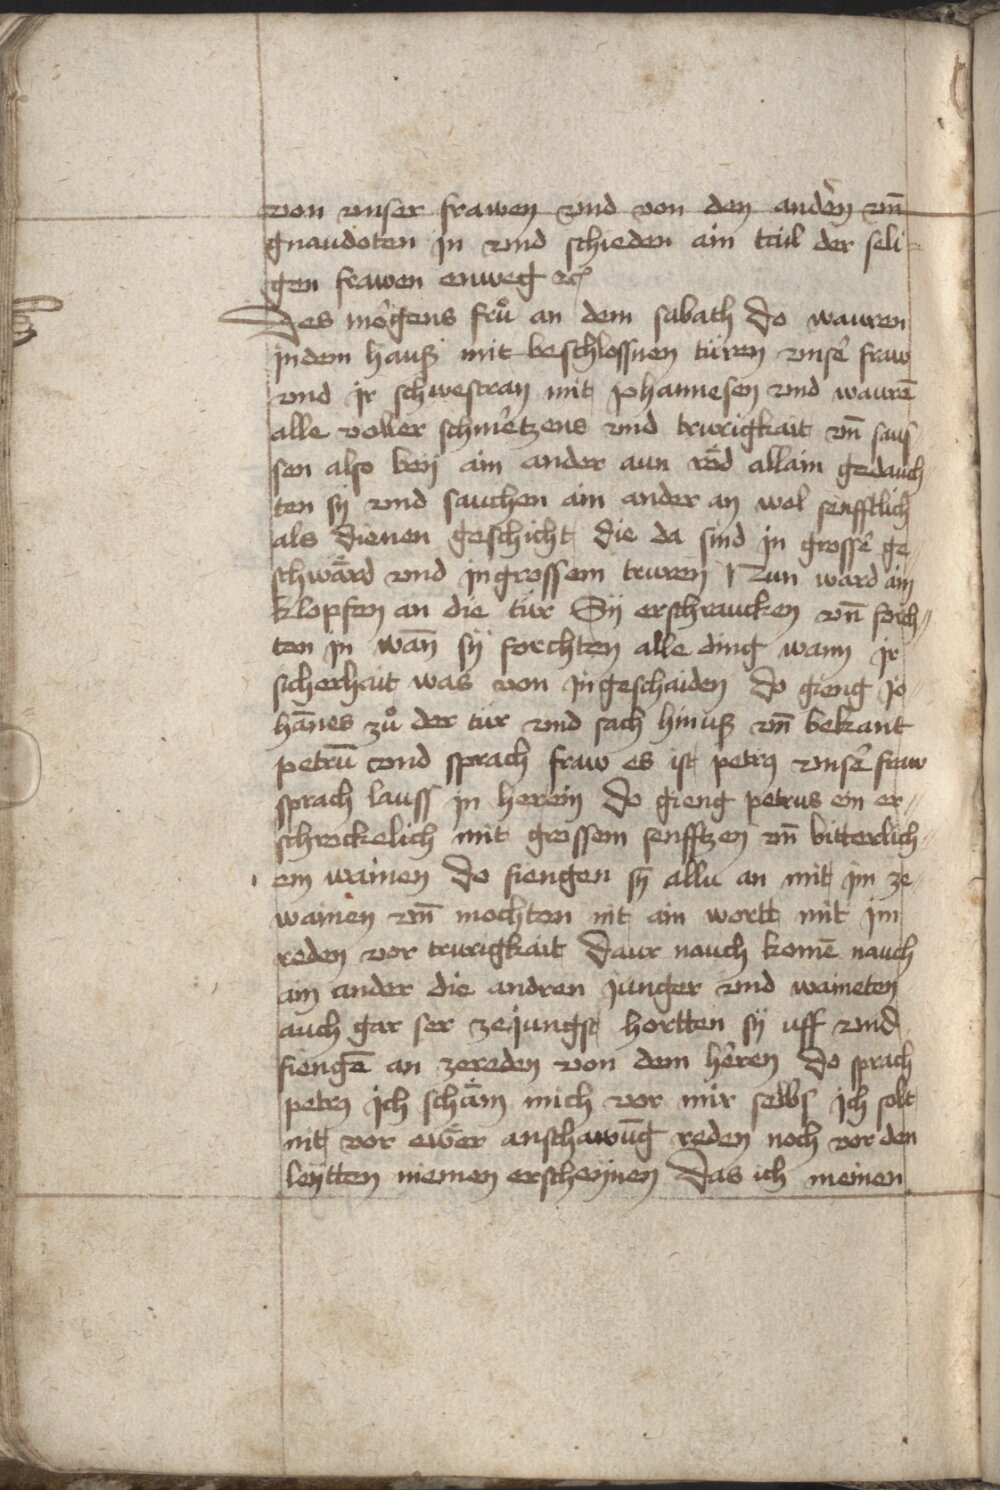 von vnser frawen vnd von den anděn vn̄
gnaudoten jn vnd schieden ain tail der seli=
gen frawen enweg ⁊c
Des mo᷑gens fru̍ an dem sabath do wauren
jn dem hauß mit beschlossnen türen vnse᷑ fraw
vnd jr schwestran mit johannesen vnd waurē
alle voller schme᷑tzens vnd trurigkait vn̄ saus
sen also beÿ ain ander aun röd allain gedauch
ten sÿ vnd sauchen ain ander an wol senfftlich
als dienen geschicht die da sind jn grosse᷑ ge
schwärd vnd jn grossem truren Nun ward ain
klopfen an die tür Sÿ erschraucken vn̄ forch=
ten jn wān sÿ forchten alle ding wann jr
sicherhait was von jn geschaiden do gieng jo
hānes zů der tür vnd sach hinuß vn̄ bekant
petrū vnd sprach fraw es ist petrꝰ vnse᷑ fraw
sprach lauss jn herein do gieng petrus ein er=
schrockelich mit grossem senfftzen vn̄ bitterlich=
em wainen do fiengen sÿ allu an mit jm ze
wainen vn̄ mochten nit ain wortt mit jm
reden vor trurigkait Daur nauch komē nauch
ain ander die andren junger vnd waineten
auch gar ser ze jungst hortten sÿ uff vnd
fiengē an ze reden von dem he᷑ren do sprach
petrꝰ jch schäm mich vor mir selbs jch solt
nit vor ewer anschawūg reden noch vor den
leÿtten niemen erscheÿnen Das ich meinen